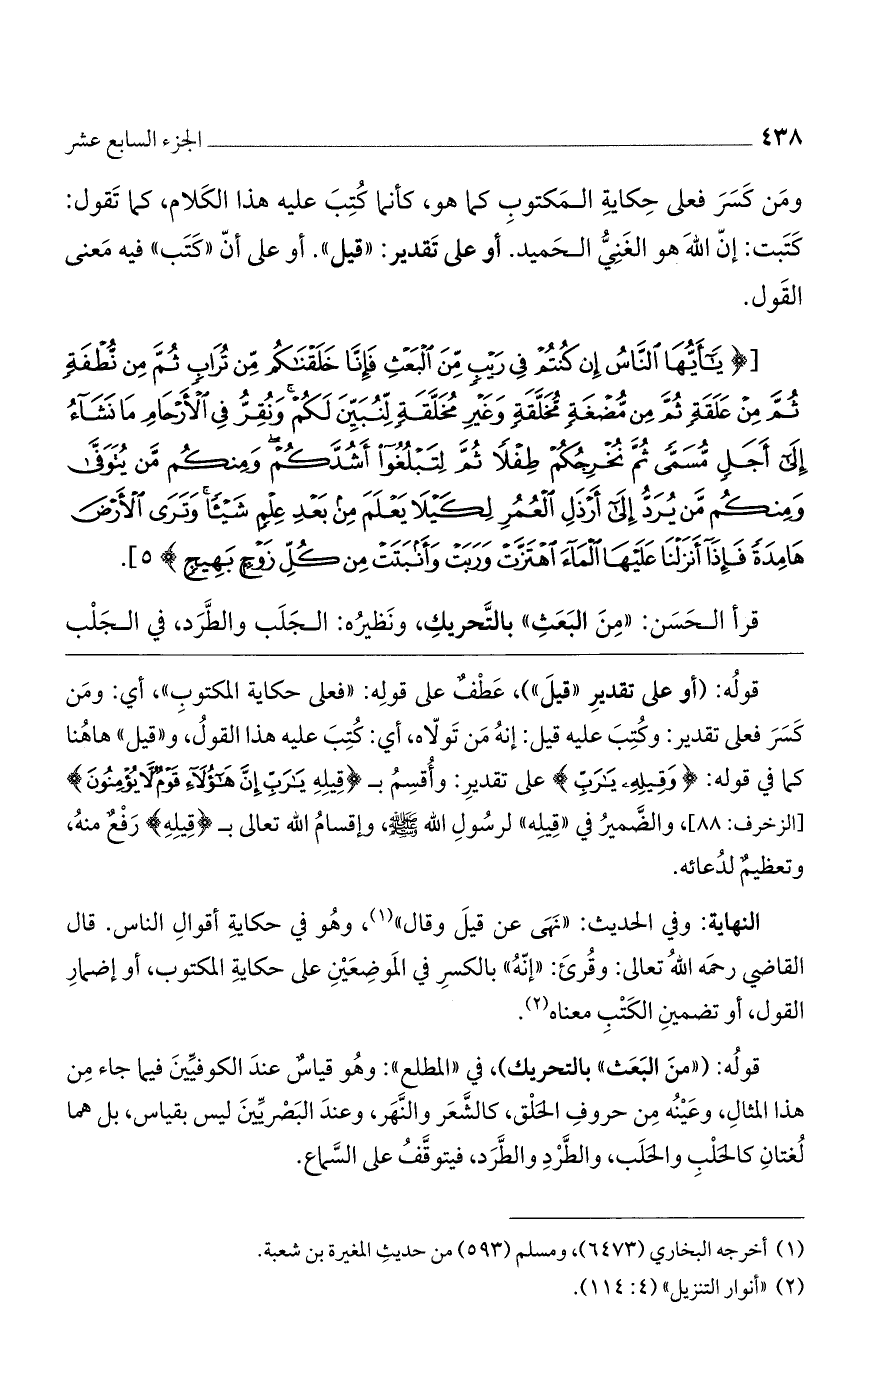 ٤٣٨ الجزء السابع عشر
ومَن كَسَرَ فعلى حِكايةِ الـمَكتوبِ كما هو، كأنما كُتِبَ عليه هذا الكَلام، كما تَقول:
كَتَبت: إنّ اللهَ هو الغَنِيُّ الـحَميد. أو على تَقدير: «قيل». أو على أنّ «كَتَب» فيه مَعنى
القَول.
[﴿ يَٰٓأَيُّهَا ٱلنَّاسُ إِن كُنتُمْ فِى رَيْبٍ مِّنَ ٱلْبَعْثِ فَإِنَّا خَلَقْنَٰكُم مِّن تُرَابٍ ثُمَّ مِن نُّطْفَةٍ
ثُمَّ مِنْ عَلَقَةٍ ثُمَّ مِن مُّضْغَةٍ مُّخَلَّقَةٍ وَغَيْرِ مُخَلَّقَةٍ لِّنُبَيِّنَ لَكُمْ ۚ وَنُقِرُّ فِى ٱلْأَرْحَامِ مَا نَشَآءُ
إِلَىٰٓ أَجَلٍ مُّسَمًّى ثُمَّ نُخْرِجُكُمْ طِفْلًا ثُمَّ لِتَبْلُغُوٓا۟ أَشُدَّكُمْ ۖ وَمِنكُم مَّن يُتَوَفَّىٰ
وَمِنكُم مَّن يُرَدُّ إِلَىٰٓ أَرْذَلِ ٱلْعُمُرِ لِكَيْلَا يَعْلَمَ مِنۢ بَعْدِ عِلْمٍ شَيْـًٔا ۚ وَتَرَى ٱلْأَرْضَ
هَامِدَةً فَإِذَآ أَنزَلْنَا عَلَيْهَا ٱلْمَآءَ ٱهْتَزَّتْ وَرَبَتْ وَأَنۢبَتَتْ مِن كُلِّ زَوْجٍۭ بَهِيجٍ ﴾ ٥].
قرأ الـحَسَن: «مِنَ البَعَثِ» بالتَّحريكِ، ونَظيرُه: الـجَلَب والطَّرَد، في الـجَلْب
قولُه: (أو على تقديرِ «قيلَ»)، عَطْفٌ على قولِه: «فعلى حكاية المكتوبِ»، أي: ومَن
كَسَرَ فعلى تقدير: وكُتِبَ عليه قيل: إنهُ مَن تَولّاه، أي: كُتِبَ عليه هذا القولُ، و«قيل» هاهُنا
كما في قوله: ﴿ وَقِيلِهِۦ يَٰرَبِّ ﴾ على تقديرِ: وأُقسِمُ بـ ﴿قِيلِهِ يَٰرَبِّ إِنَّ هَٰٓؤُلَآءِ قَوْمٌ لَّا يُؤْمِنُونَ ﴾
[الزخرف: ٨٨]، والضَّميرُ في «قِيلِه» لرسُولِ الله ﷺ، وإقسامُ الله تعالى بـ ﴿قِيلِهِ﴾ رَفْعٌ منهُ،
وتعظيمٌ لدُعائه.
النهاية: وفي الحديث: «نَهَى عن قيلَ وقال»(١)، وهُو في حكايةِ أقوالِ الناس. قال
القاضي رحمَه اللهُ تعالى: وقُرئَ: «إنّهُ» بالكسرِ في المَوضِعَيْنِ على حكايةِ المكتوب، أو إضمارِ
القول، أو تضمينِ الكَتْبِ معناه(٢).
قولُه: («منَ البَعَث» بالتحريك)، في «المطلع»: وهُو قياسٌ عندَ الكوفيِّينَ فيما جاء مِن
هذا المثالِ، وعَيْنُه مِن حروفِ الحَلْق، كالشَّعَر والنَّهَر، وعندَ البَصْريِّينَ ليس بقياس، بل هما
لُغتانِ كالحَلْبِ والحَلَب، والطَّرْدِ والطَّرَد، فيتوقَّفُ على السَّماع.
(١) أخرجه البخاري (٦٤٧٣)، ومسلم (٥٩٣) من حديثِ المغيرة بن شعبة.
(٢) «أنوار التنزيل» (٤: ١١٤).